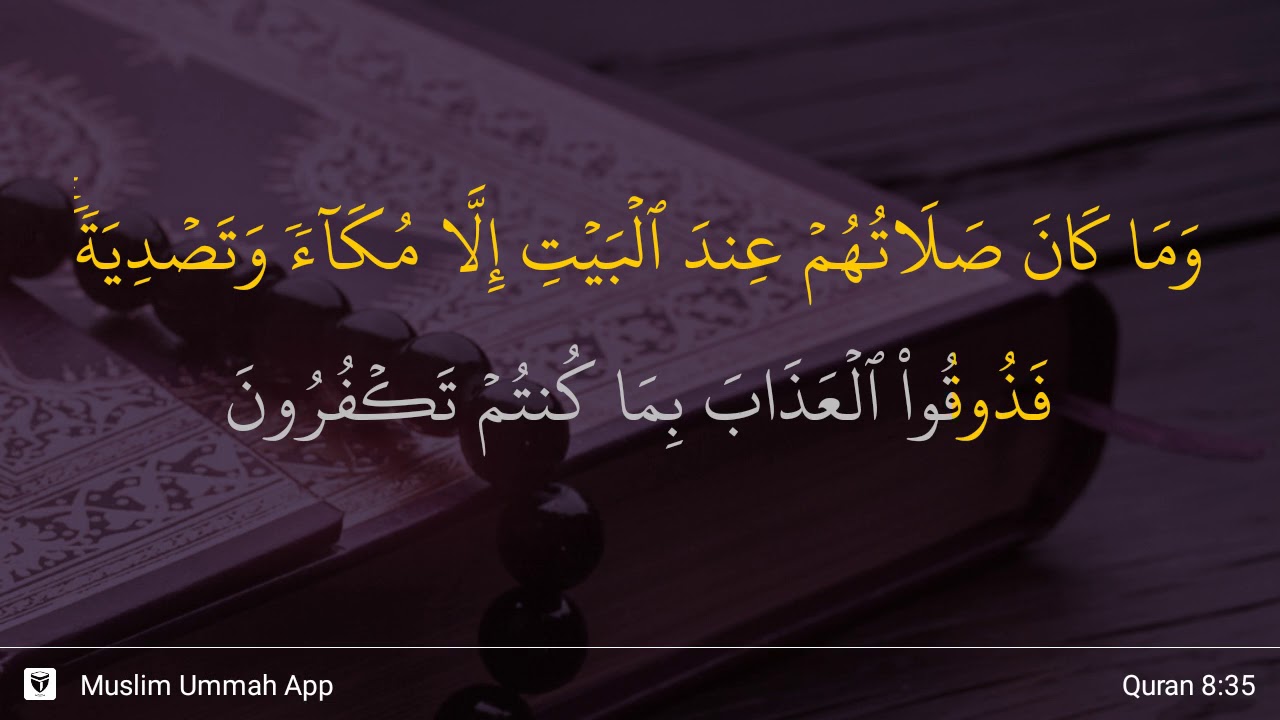 وَمَا كَانَ صَلَاتُهُمۡ عِندَ ٱلۡبَيۡتِ إِلَّا مُكَآءٗ وَتَصۡدِيَةٗۚ
فَذُوقُواْ ٱلۡعَذَابَ بِمَا كُنتُمۡ تَكۡفُرُونَ
Muslim Ummah App
Quran 8:35